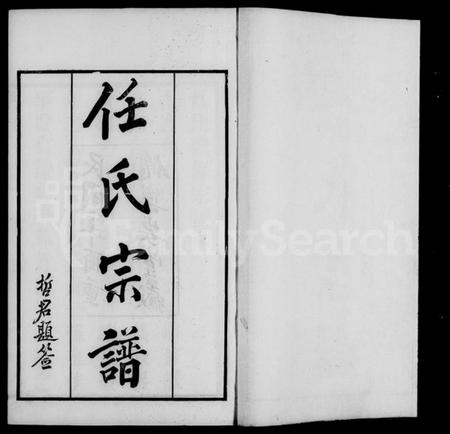 任氏宗譜
哲君題签
FamilySearch